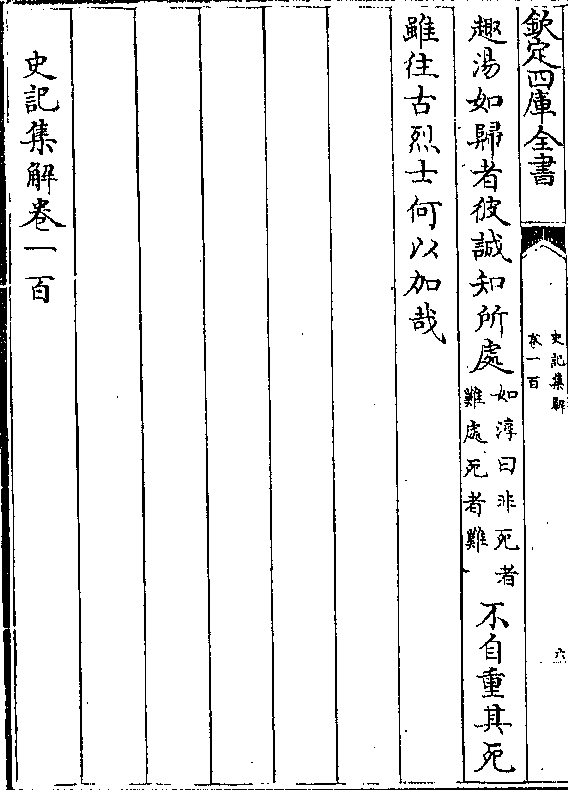 欽定四庫全書
史記集解
卷一百
六
趣湯如歸者彼誠知所處
如淳曰非死者
難處死者難
不自重其死
雖往古烈士何以加哉
史記集解卷一百